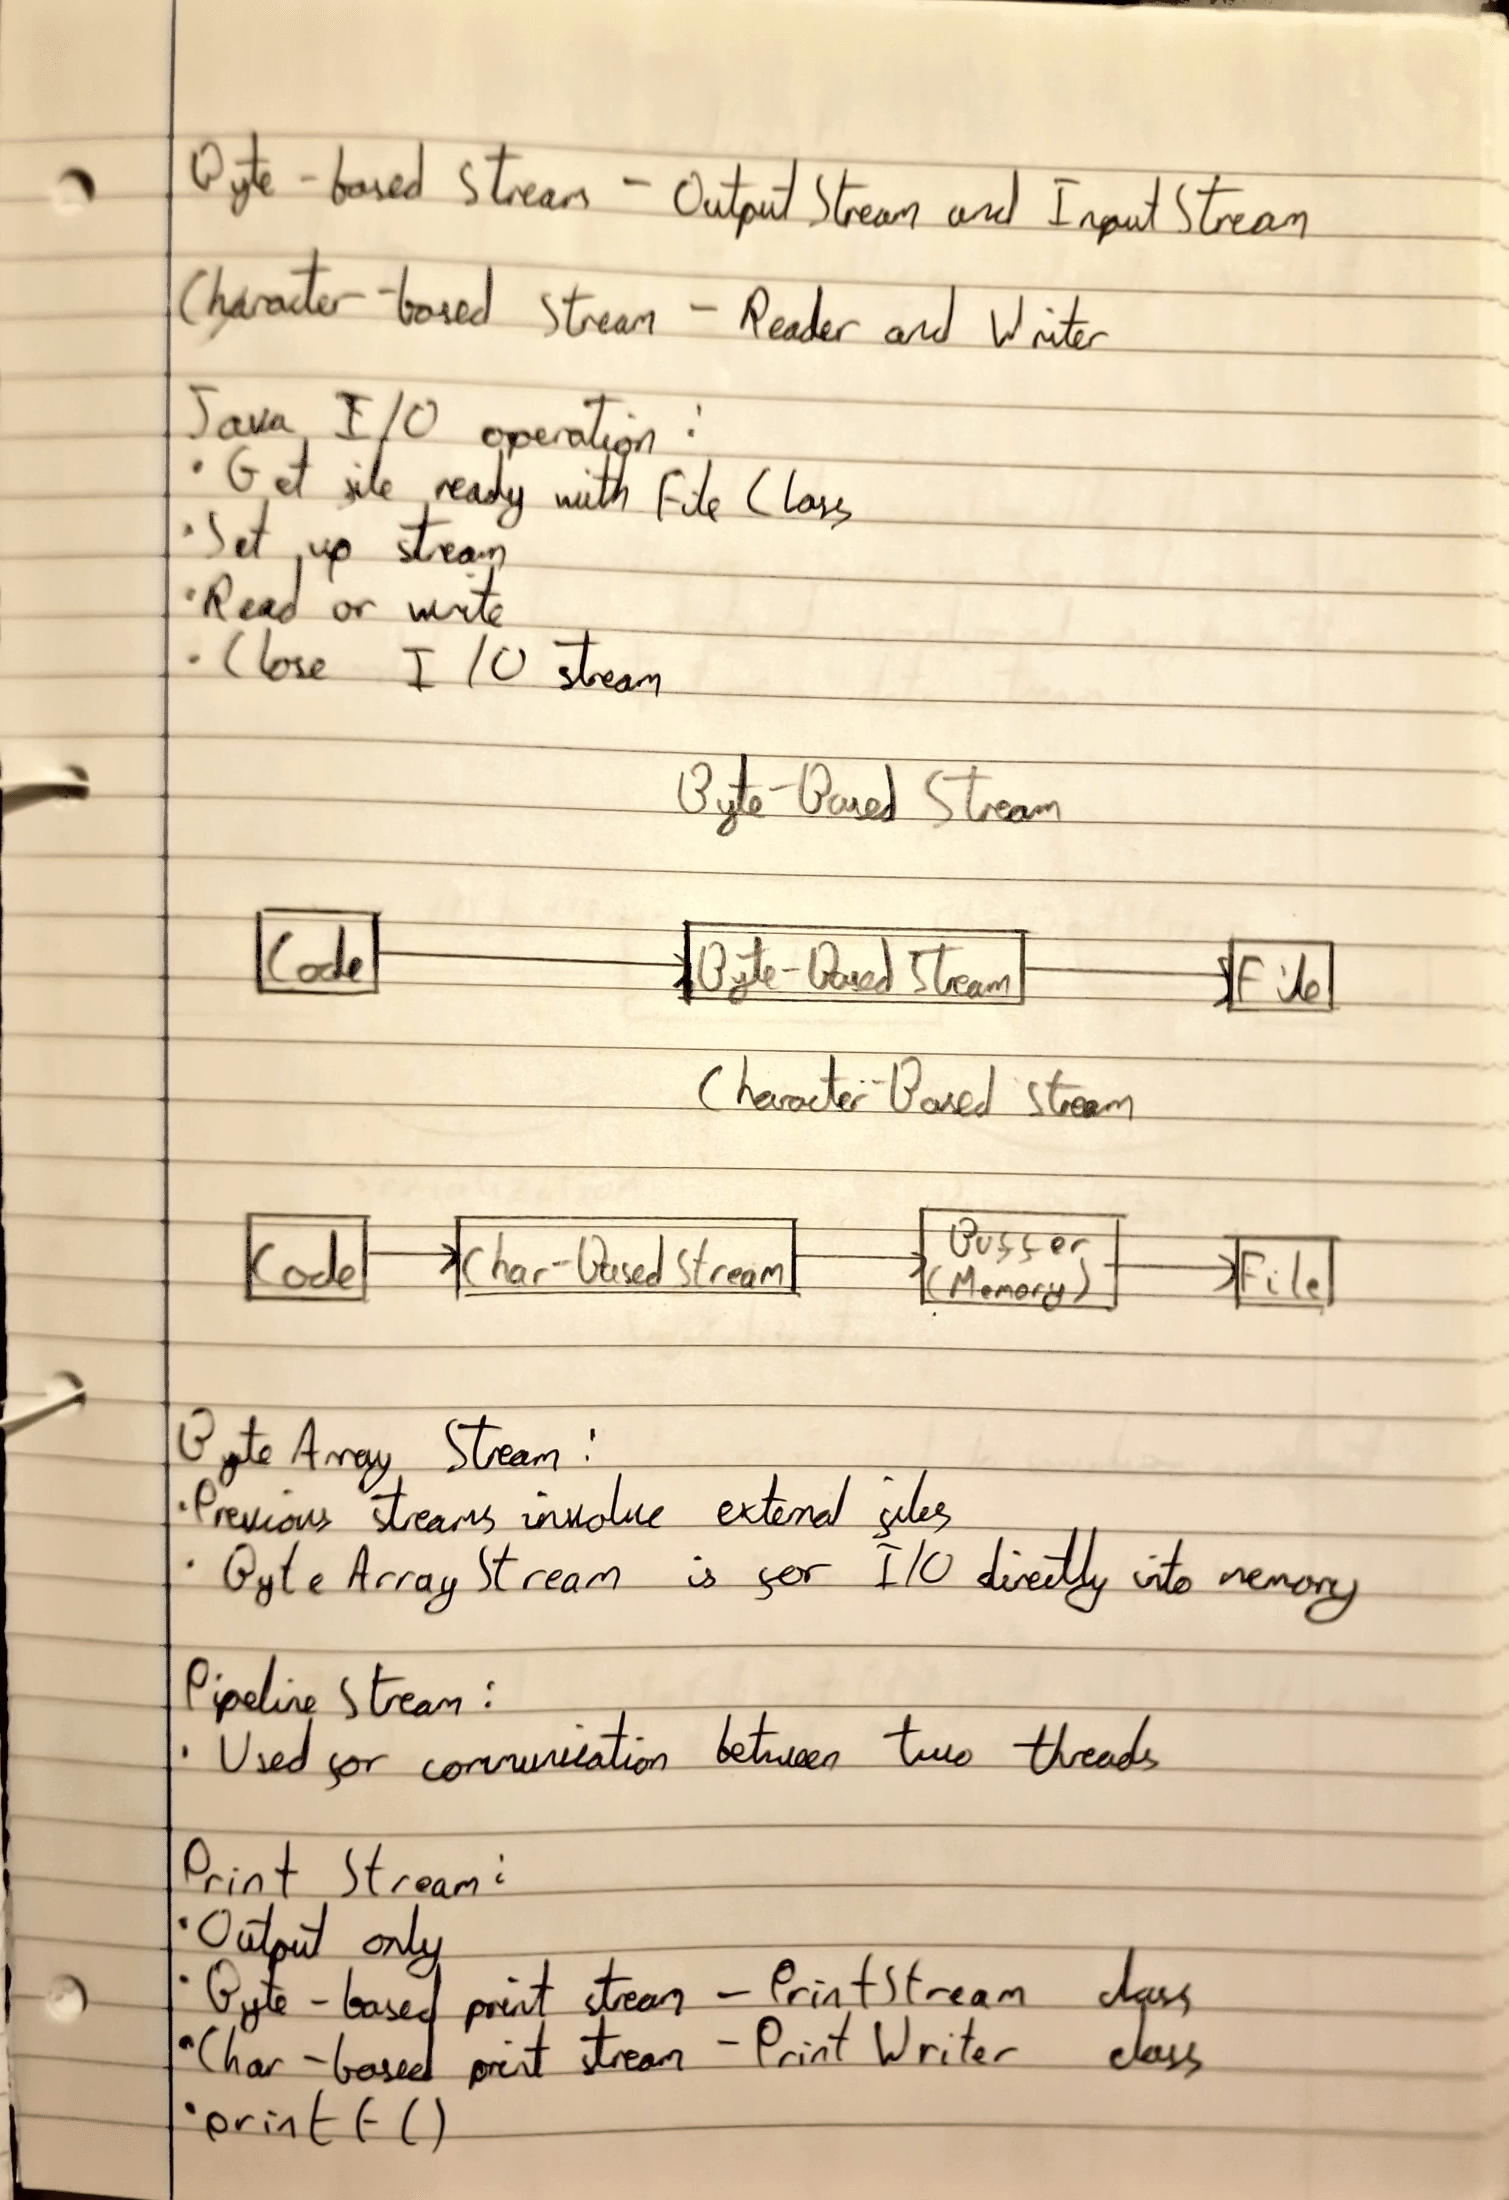 Byte-based Stream - OutputStream and InputStream
Character-based Stream - Reader and Writer
Java I/O operation:
• Get file ready with File Class
• Set up stream
• Read or write
• Close I/O stream
Byte-Based Stream
Code Byte-Based Stream File
Character-Based Stream
Code Char-Based Stream Buffer (Memory) File
Byte Array Stream:
• Previous streams involve external files
• Byte Array Stream is for I/O directly into memory
Pipeline Stream:
• Used for communication between two threads
Print Stream:
• Output only
• Byte-based print stream - PrintStream class
• Char-based print stream - PrintWriter class
• printf()